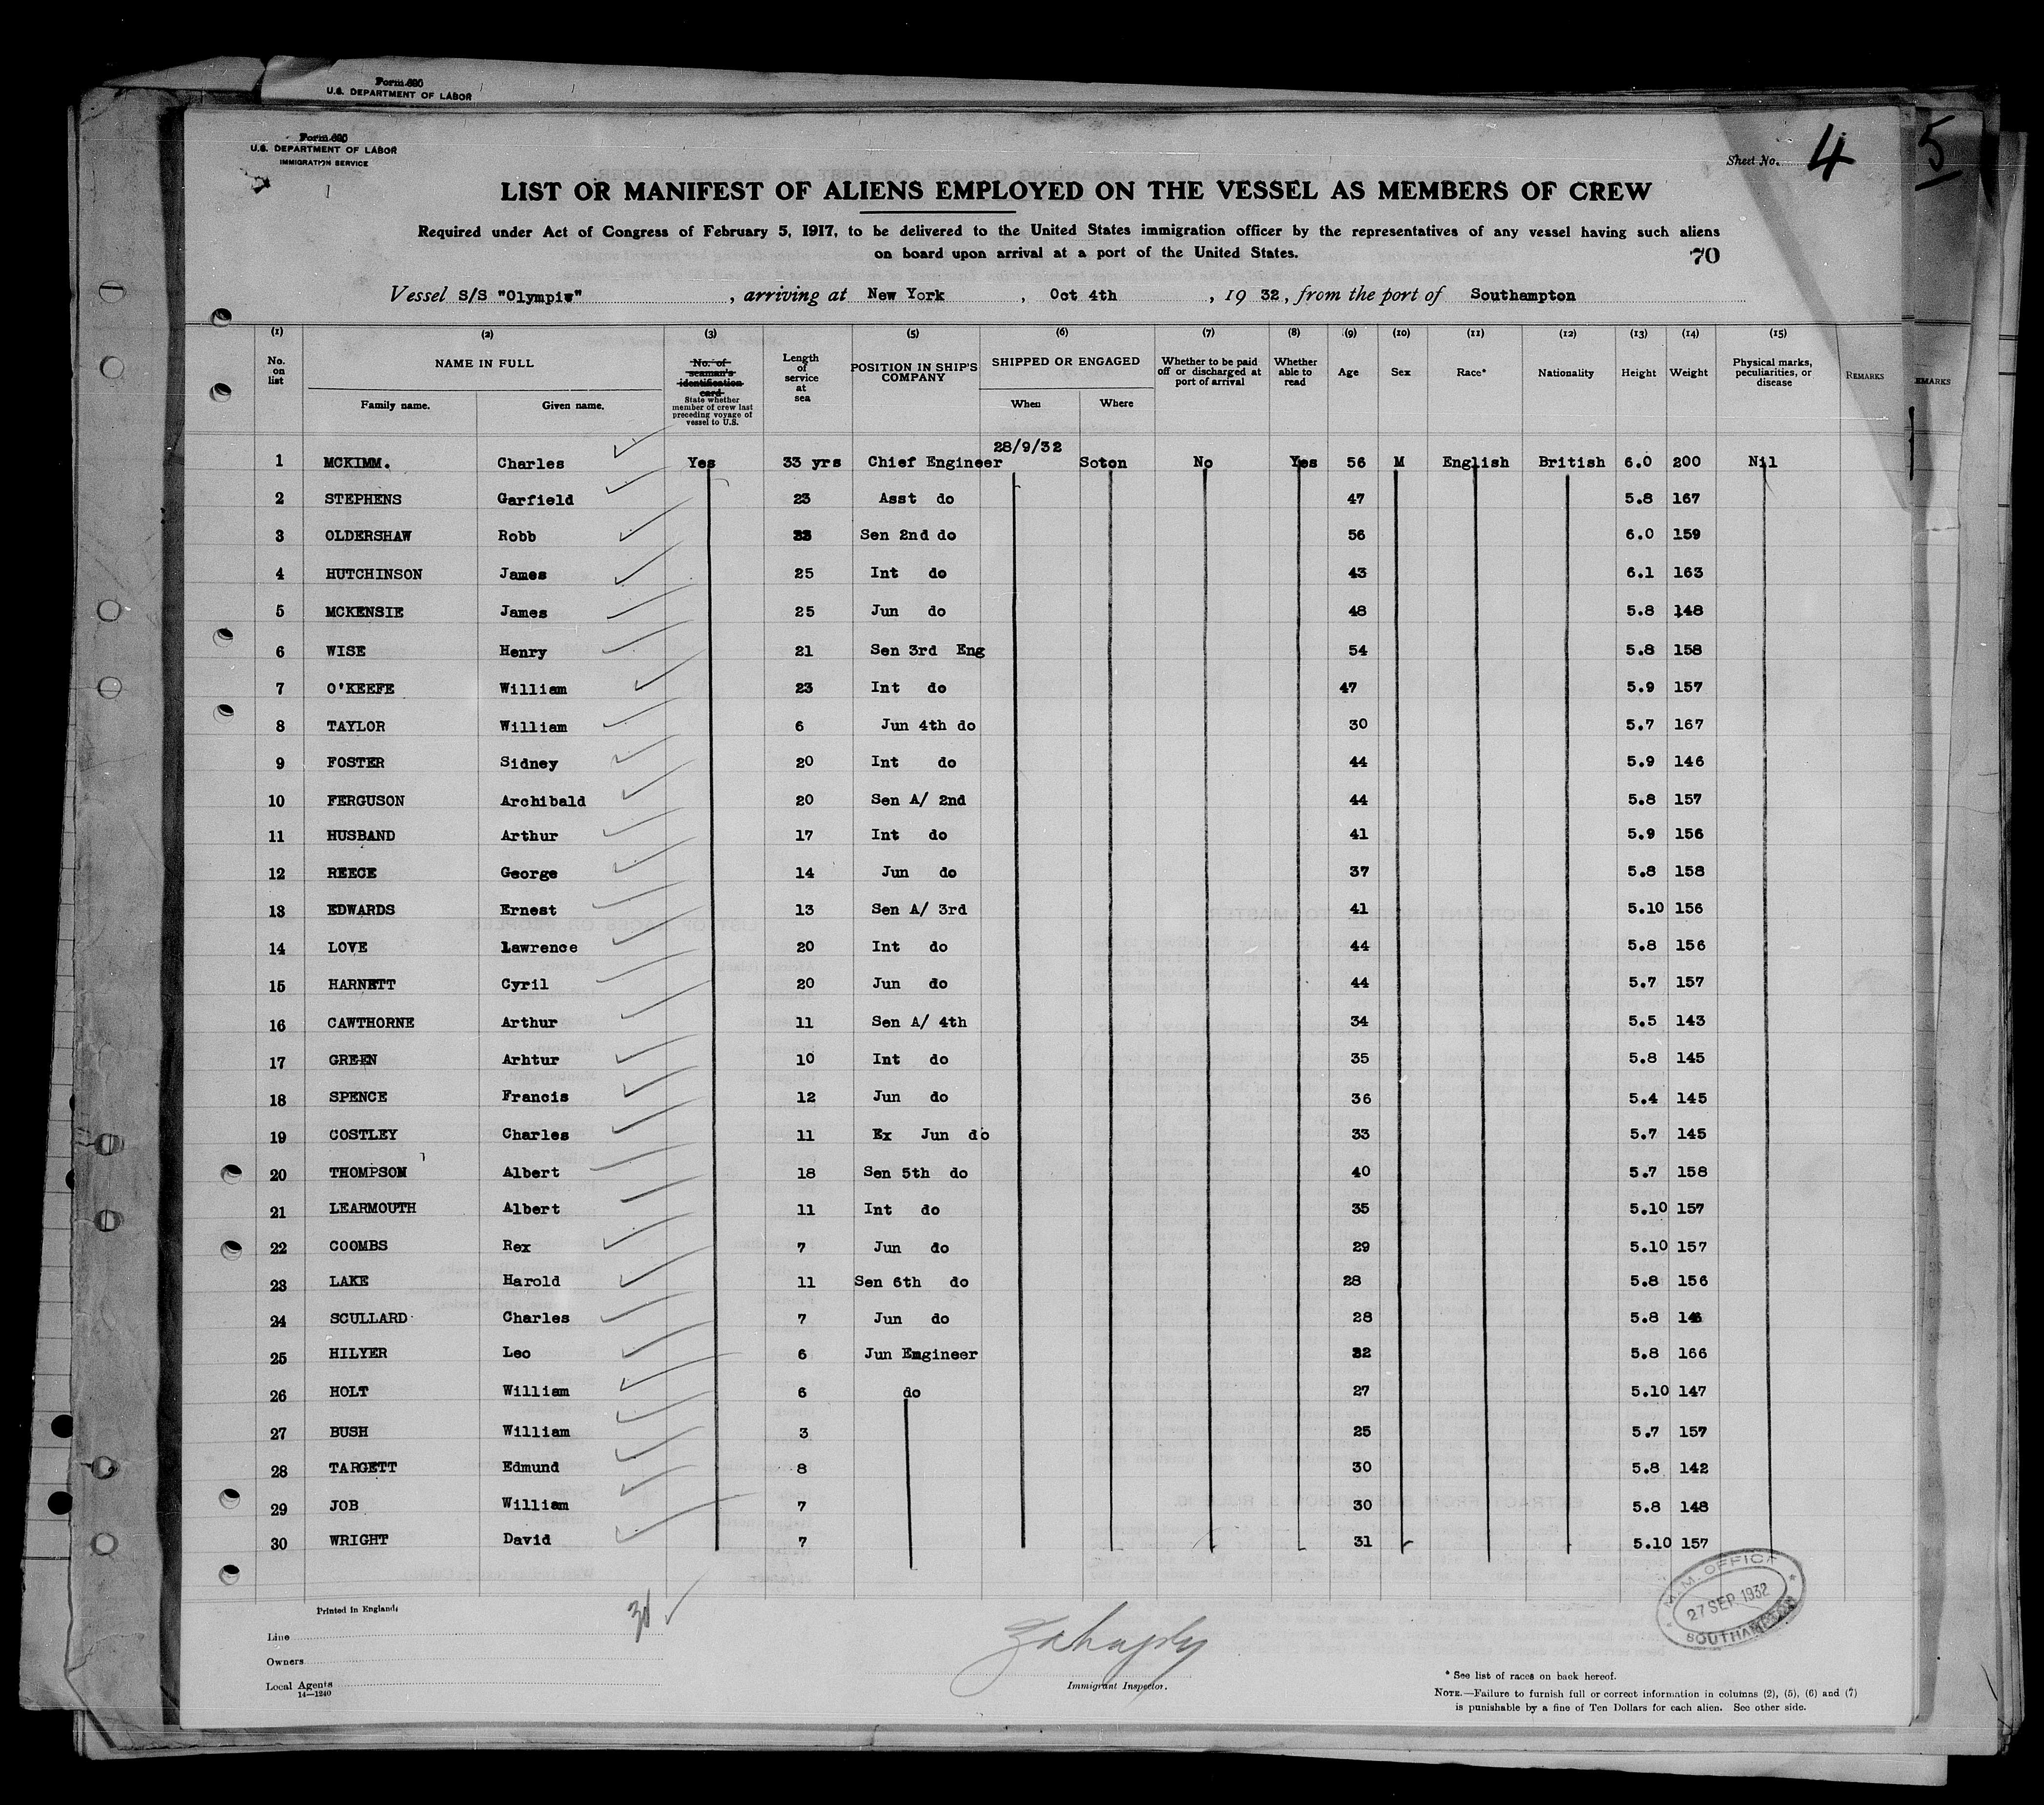 Form 690
U.S. DEPARTMENT OF LABOR
Form 690
U.S. DEPARTMENT OF LABOR
IMMIGRATION SERVICE
Sheet No. 4
5
LIST OR MANIFEST OF ALIENS EMPLOYED ON THE VESSEL AS MEMBERS OF CREW
Required under Act of Congress of February 5, 1917, to be delivered to the United States immigration officer by the representatives of any vessel having such aliens
on board upon arrival at a port of the United States.
70
Vessel S/S "Olympiw", arriving at New York, Oct 4th, 1932, from the port of Southampton
(1) (2) (3) (5) (6) (7) (8) (9) (10) (11) (12) (13) (14) (15)
No. on list
NAME IN FULL
Family name. Given name.
No. of seaman's identification card
State whether member of crew last preceding voyage of vessel to U.S.
Length of service at sea
POSITION IN SHIP'S COMPANY
SHIPPED OR ENGAGED
When Where
Whether to be paid off or discharged at port of arrival
Whether able to read
Age
Sex
Race*
Nationality
Height
Weight
Physical marks, peculiarities, or disease
REMARKS
EMARKS
28/9/32
1 MCKIMM. Charles Yes 33 yrs Chief Engineer Soton No Yes 56 M English British 6.0 200 Nil
2 STEPHENS Garfield 23 Asst do 47 5.8 167
3 OLDERSHAW Robb 33 Sen 2nd do 56 6.0 159
4 HUTCHINSON James 25 Int do 43 6.1 163
5 MCKENSIE James 25 Jun do 48 5.8 148
6 WISE Henry 21 Sen 3rd Eng 54 5.8 158
7 O'KEEFE William 23 Int do 47 5.9 157
8 TAYLOR William 6 Jun 4th do 30 5.7 167
9 FOSTER Sidney 20 Int do 44 5.9 146
10 FERGUSON Archibald 20 Sen A/ 2nd 44 5.8 157
11 HUSBAND Arthur 17 Int do 41 5.9 156
12 REECE George 14 Jun do 37 5.8 158
13 EDWARDS Ernest 13 Sen A/ 3rd 41 5.10 156
14 LOVE Lawrence 20 Int do 44 5.8 156
15 HARNETT Cyril 20 Jun do 44 5.7 157
16 CAWTHORNE Arthur 11 Sen A/ 4th 34 5.5 143
17 GREEN Arhtur 10 Int do 35 5.8 145
18 SPENCE Francis 12 Jun do 36 5.4 145
19 COSTLEY Charles 11 Ex Jun do 33 5.7 145
20 THOMPSON Albert 18 Sen 5th do 40 5.7 158
21 LEARMOUTH Albert 11 Int do 35 5.10 157
22 COOMBS Rex 7 Jun do 29 5.10 157
23 LAKE Harold 11 Sen 6th do 28 5.8 156
24 SCULLARD Charles 7 Jun do 28 5.8
25 HILYER Leo 6 Jun Engineer 32 5.8 166
26 HOLT William 6 do 27 5.10 147
27 BUSH William 3 25 5.7 157
28 TARGETT Edmund 8 30 5.8 142
29 JOB William 7 30 5.8 148
30 WRIGHT David 7 31 5.10 157
Printed in England.
Line
Owners
Local Agents
14—1240
Immigrant Inspector.
M.M. OFFICE
27 SEP. 1932
SOUTHAMPTON
* See list of races on back hereof.
NOTE.—Failure to furnish full or correct information in columns (2), (5), (6) and (7)
is punishable by a fine of Ten Dollars for each alien. See other side.